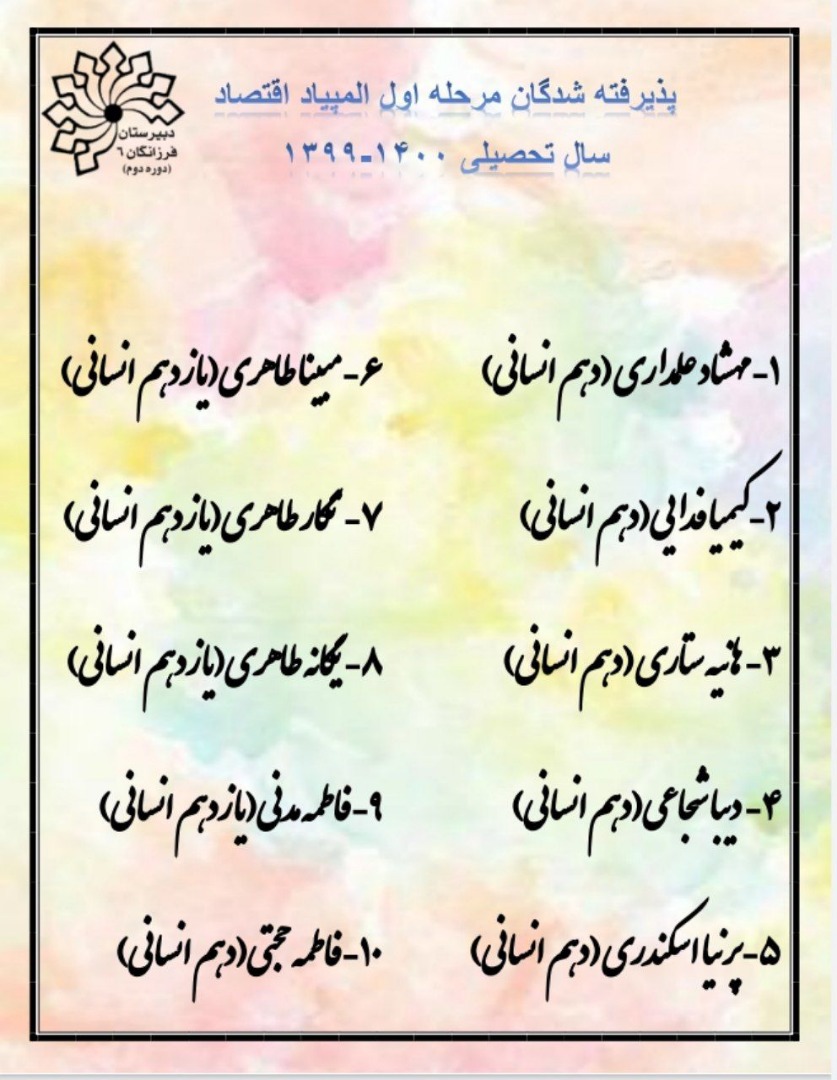 دبیرستان
فرزانگان ٦
(دوره دوم)
پذیرفته شدگان مرحله اول المپیاد اقتصاد
سال تحصیلی ۱۴۰۰-۱۳۹۹
۱- مهشاد علمداری (دهم انسانی)
۲- کیمیا فدایی (دهم انسانی)
۳- هانیه ستاری (دهم انسانی)
۴- دیبا شجاعی (دهم انسانی)
۵- پرنیا اسکندری (دهم انسانی)
۶- مبینا طاهری (یازدهم انسانی)
۷- نگار طاهری (یازدهم انسانی)
۸- یگانه طاهری (یازدهم انسانی)
۹- فاطمه مدنی (یازدهم انسانی)
۱۰- فاطمه حجتی (دهم انسانی)